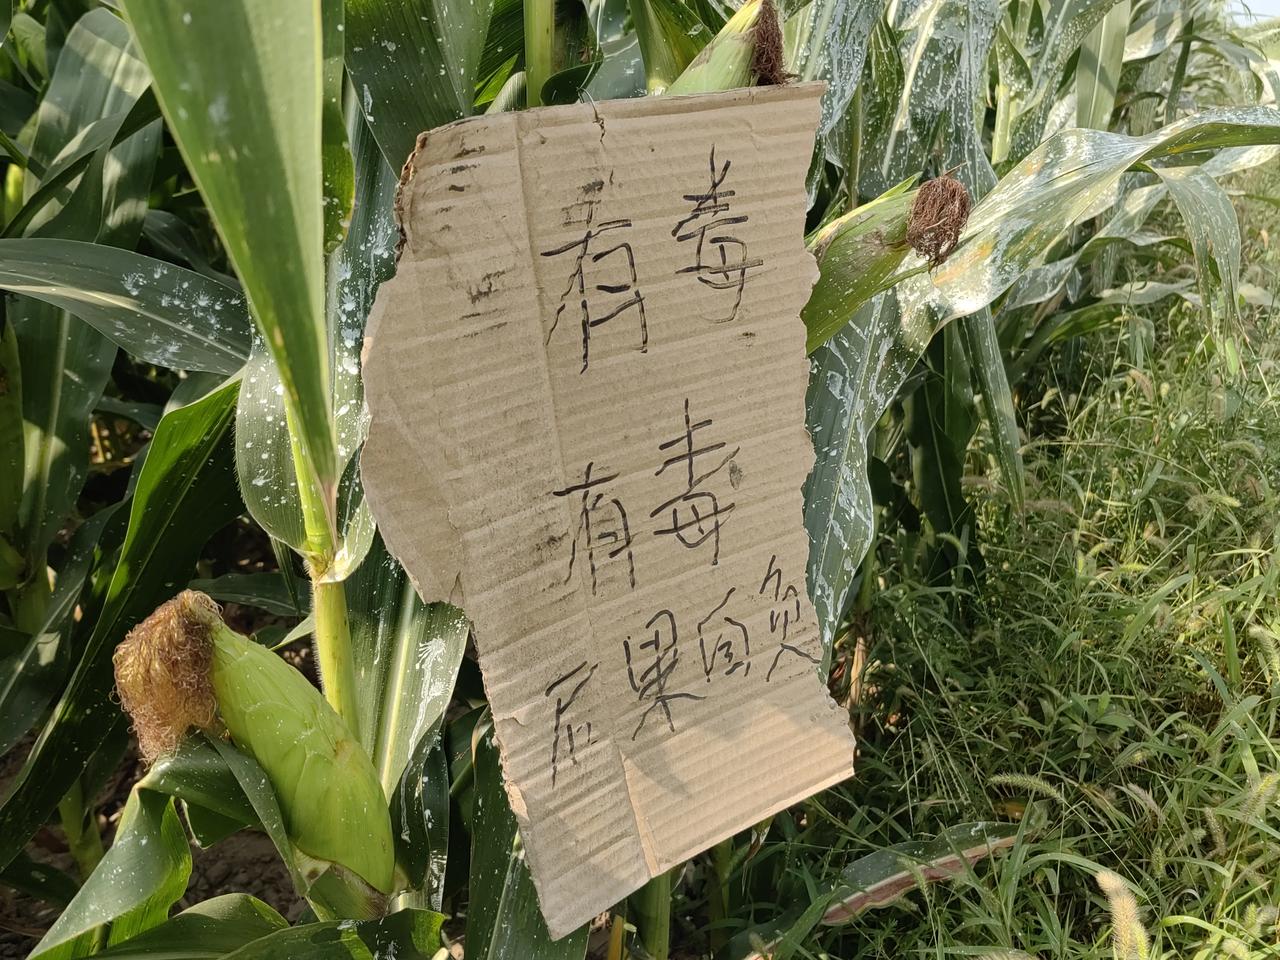 有毒
有毒
后果自负